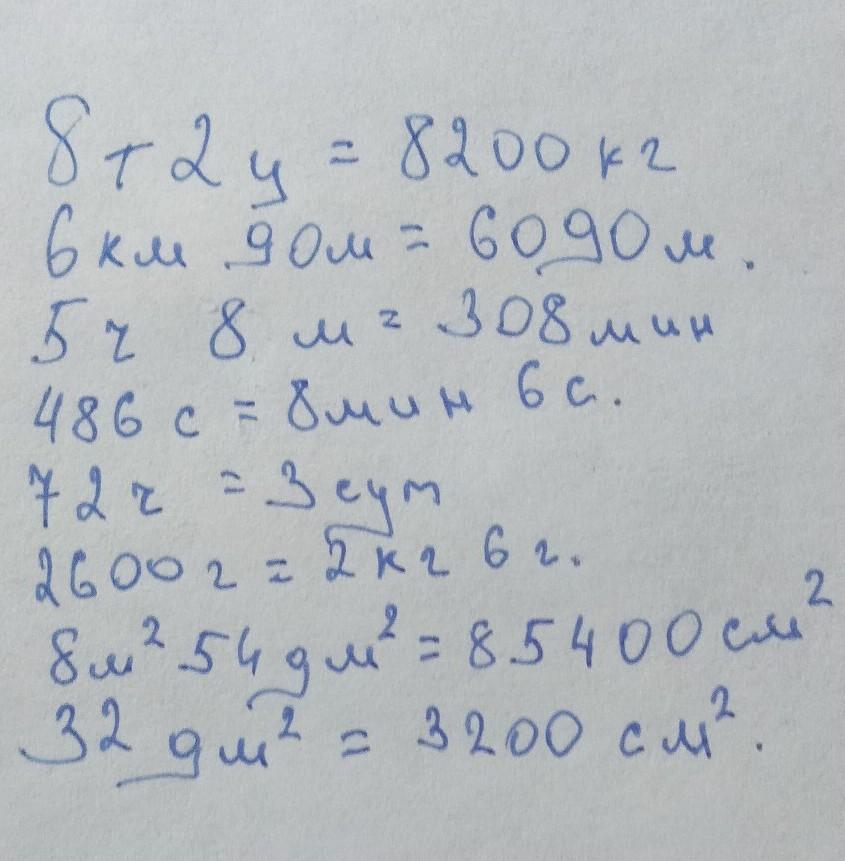 8 т 2 ц = 8200 кг
6 км 90 м = 6090 м.
5 ч 8 м = 308 мин
486 с = 8 мин 6 с.
72 ч = 3 сут
2600 г = 2 кг 6 г.
8 м² 54 дм² = 85400 см²
32 дм² = 3200 см².